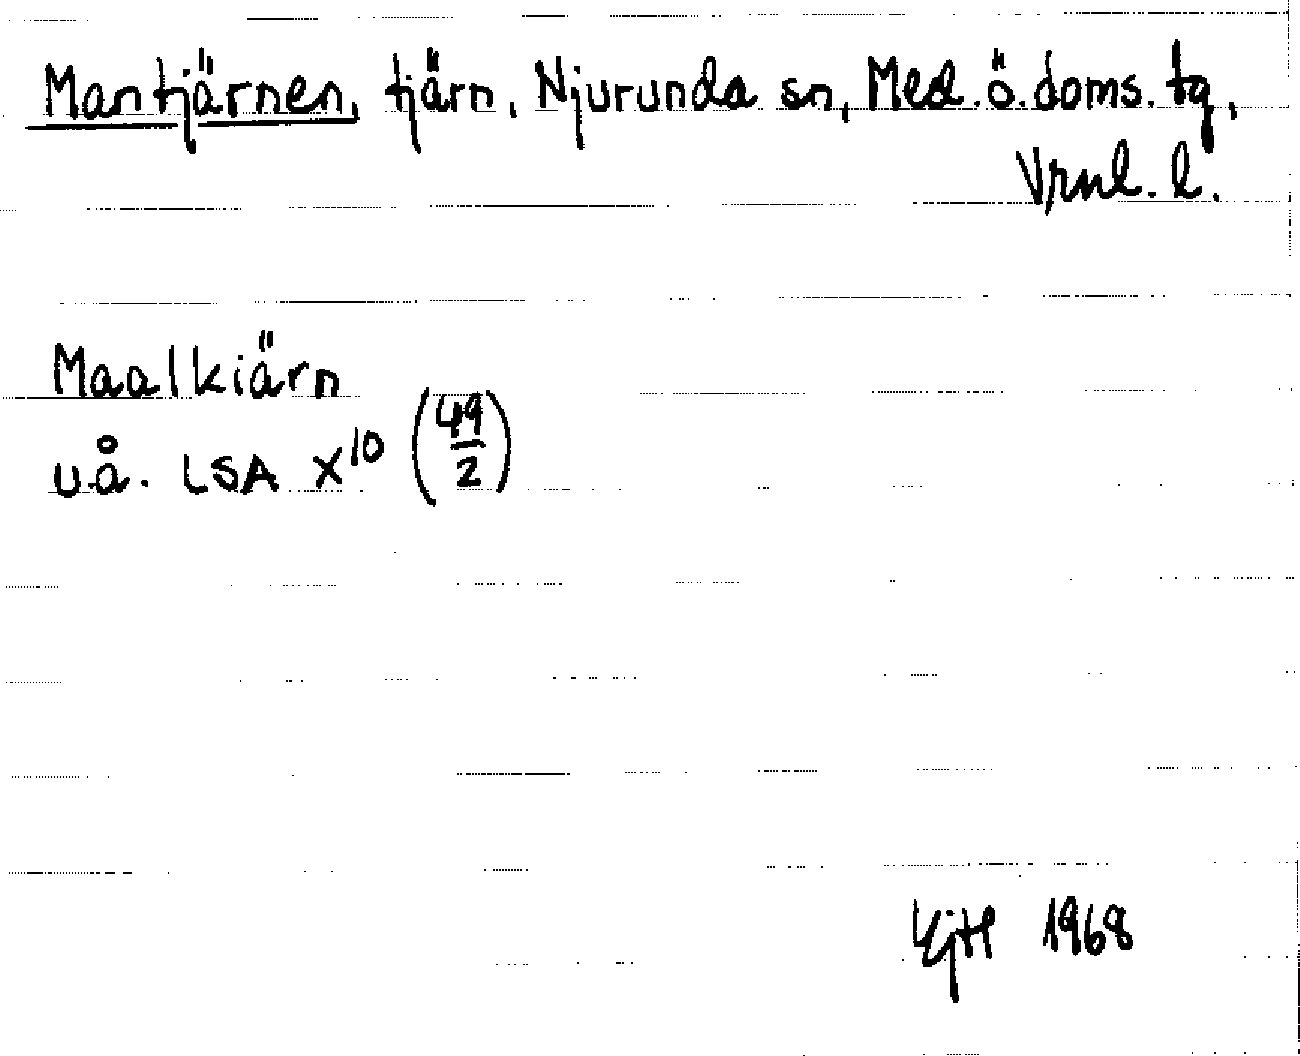 Mantjärnen, tjärn, Njurunda sn, Med. ö. doms. tg,
Vrnl. l.
Maalkiärn
u.å. LSA X10 (49/2)
1968